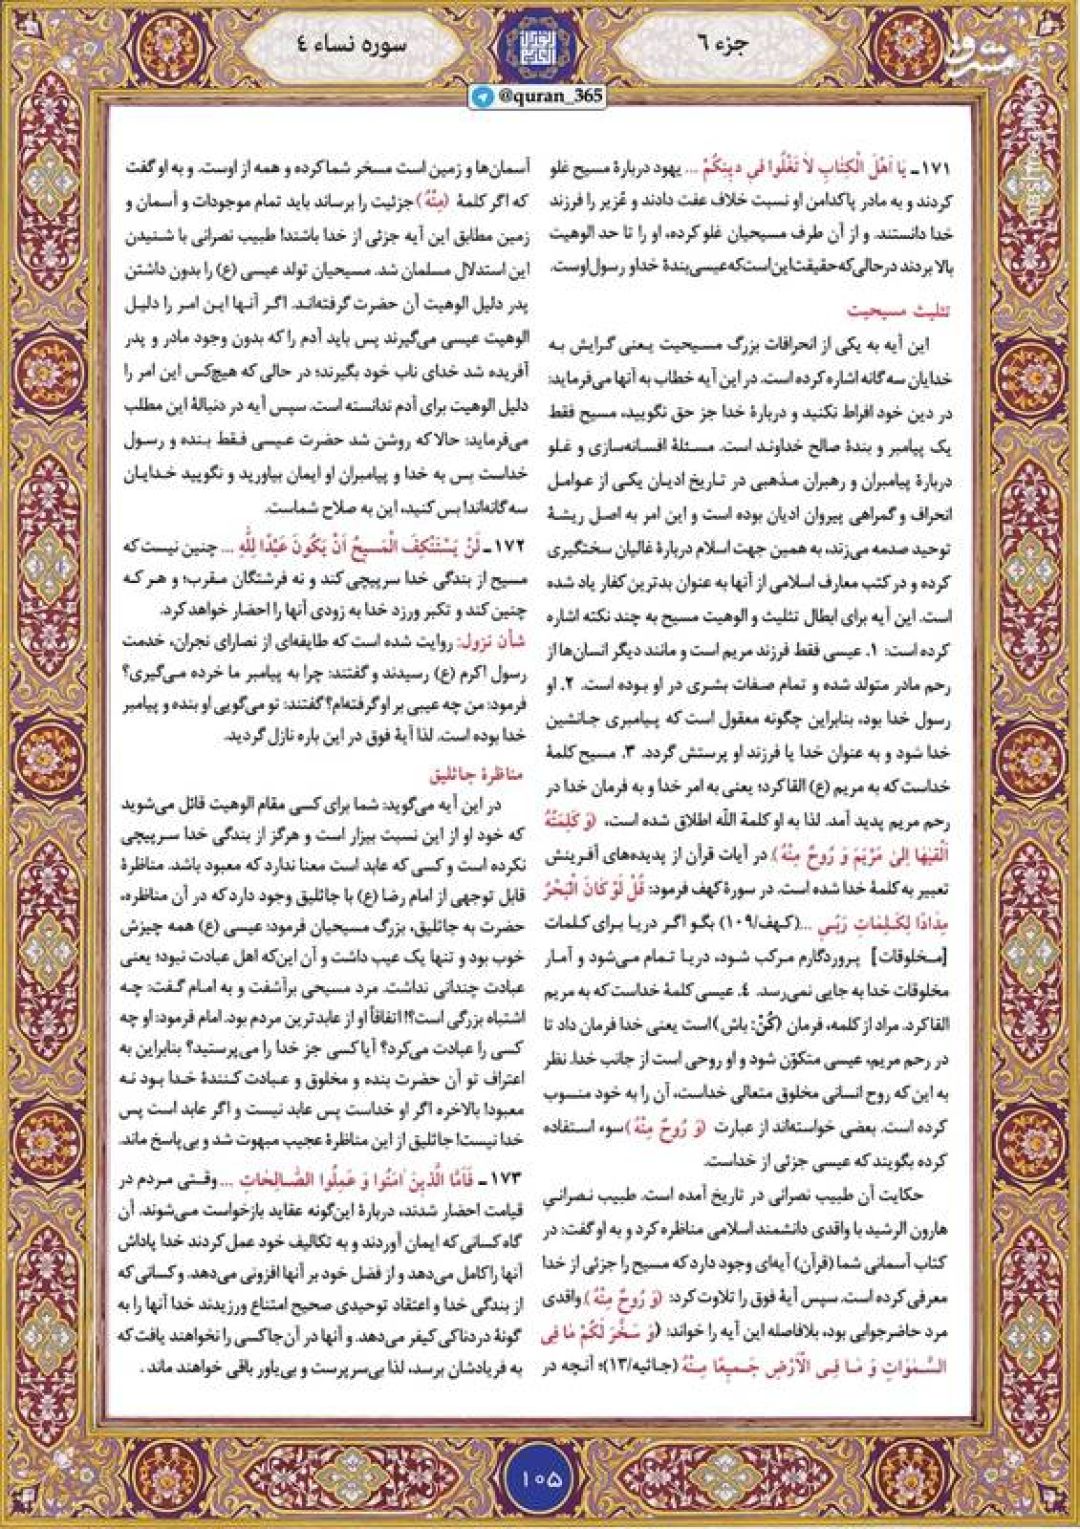 جزء ۶
سوره نساء ۴
@quran_365
۱۷۱ـ یَا اَهْلَ الْکِتَابِ لاَ تَغْلُوا فِي دِینِکُمْ ... یهود دربارهٔ مسیح غلو
کردند و به مادر پاکدامن او نسبت خلاف عفت دادند و عُزیر را فرزند
خدا دانستند. و از آن طرف مسیحیان غلو کرده، او را تا حد الوهیت
بالا بردند در حالی که حقیقت این است که عیسی بندهٔ خدا و رسول اوست.
تثلیث مسیحیت
این آیه به یکی از انحرافات بزرگ مسیحیت یعنی گرایش به
خدایان سه گانه اشاره کرده است. در این آیه خطاب به آنها می‌فرماید:
در دین خود افراط نکنید و دربارهٔ خدا جز حق نگویید، مسیح فقط
یک پیامبر و بندهٔ صالح خداوند است. مسئلهٔ افسانه‌سازی و غلو
دربارهٔ پیامبران و رهبران مذهبی در تاریخ ادیان یکی از عوامل
انحراف و گمراهی پیروان ادیان بوده است و این امر به اصل ریشهٔ
توحید صدمه می‌زند، به همین جهت اسلام دربارهٔ غالیان سختگیری
کرده و در کتب معارف اسلامی از آنها به عنوان بدترین کفار یاد شده
است. این آیه برای ابطال تثلیث و الوهیت مسیح به چند نکته اشاره
کرده است: ۱. عیسی فقط فرزند مریم است و مانند دیگر انسان‌ها از
رحم مادر متولد شده و تمام صفات بشری در او بوده است. ۲. او
رسول خدا بود، بنابراین چگونه معقول است که پیامبری جانشین
خدا شود و به عنوان خدا یا فرزند او پرستش گردد. ۳. مسیح کلمهٔ
خداست که به مریم (ع) القا کرد؛ یعنی به امر خدا و به فرمان خدا در
رحم مریم پدید آمد. لذا به او کلمة الله اطلاق شده است، (وَ کَلِمَتُهُ
اَلْقیٰهَا اِلیٰ مَرْیَمَ وَ رُوحٌ مِنْهُ). در آیات قرآن از پدیده‌های آفرینش
تعبیر به کلمهٔ خدا شده است. در سورهٔ کهف فرمود: قُلْ لَوْ کَانَ الْبَحْرُ
مِدَادًا لِکَلِمَاتِ رَبِّي ...(کهف/۱۰۹) بگو اگر دریا برای کلمات
[مخلوقات] پروردگارم مرکب شود، دریا تمام می‌شود و آمار
مخلوقات خدا به جایی نمی‌رسد. ٤. عیسی کلمهٔ خداست که به مریم
القا کرد. مراد از کلمه، فرمان (کُنْ: باش) است یعنی خدا فرمان داد تا
در رحم مریم، عیسی متکوّن شود و او روحی است از جانب خدا. نظر
به این که روح انسانی مخلوق متعالی خداست، آن را به خود منسوب
کرده است. بعضی خواسته‌اند از عبارت (وَ رُوحٌ مِنْهُ) سوء استفاده
کرده بگویند که عیسی جزئی از خداست.
حکایت آن طبیب نصرانی در تاریخ آمده است. طبیب نصرانی
هارون الرشید با واقدی دانشمند اسلامی مناظره کرد و به او گفت: در
کتاب آسمانی شما (قرآن) آیه‌ای وجود دارد که مسیح را جزئی از خدا
معرفی کرده است. سپس آیهٔ فوق را تلاوت کرد: (وَ رُوحٌ مِنْهُ). واقدی
مرد حاضرجوابی بود، بلافاصله این آیه را خواند: (وَ سَخَّرَ لَکُمْ مَا فِي
السَّمٰوَاتِ وَ مَا فِي الْاَرْضِ جَمِیعًا مِنْهُ (جاثیه/۱۳)؛ آنچه در
آسمان‌ها و زمین است مسخر شما کرده و همه از اوست. و به او گفت
که اگر کلمهٔ (مِنْهُ) جزئیت را برساند باید تمام موجودات و آسمان و
زمین مطابق این آیه جزئی از خدا باشند! طبیب نصرانی با شنیدن
این استدلال مسلمان شد. مسیحیان تولد عیسی (ع) را بدون داشتن
پدر دلیل الوهیت آن حضرت گرفته‌اند. اگر آنها این امر را دلیل
الوهیت عیسی می‌گیرند پس باید آدم را که بدون وجود مادر و پدر
آفریده شد خدای ناب خود بگیرند؛ در حالی که هیچ‌کس این امر را
دلیل الوهیت برای آدم ندانسته است. سپس آیه در دنبالهٔ این مطلب
می‌فرماید: حالا که روشن شد حضرت عیسی فقط بنده و رسول
خداست بس به خدا و پیامبران او ایمان بیاورید و نگویید خدایان
سه گانه‌اند! بس کنید، این به صلاح شماست.
۱۷۲ـ لَنْ یَسْتَنْکِفَ الْمَسِیحُ اَنْ یَکُونَ عَبْدًا لِلّٰهِ ... چنین نیست که
مسیح از بندگی خدا سرپیچی کند و نه فرشتگان مقرب؛ و هر که
چنین کند و تکبر ورزد خدا به زودی آنها را احضار خواهد کرد.
شأن نزول: روایت شده است که طایفه‌ای از نصارای نجران، خدمت
رسول اکرم (ع) رسیدند و گفتند: چرا به پیامبر ما خرده می‌گیری؟
فرمود: من چه عیبی بر او گرفته‌ام؟ گفتند: تو می‌گویی او بنده و پیامبر
خدا بوده است. لذا آیهٔ فوق در این باره نازل گردید.
مناظرهٔ جاثلیق
در این آیه می‌گوید: شما برای کسی مقام الوهیت قائل می‌شوید
که خود او از این نسبت بیزار است و هرگز از بندگی خدا سرپیچی
نکرده است و کسی که عابد است معنا ندارد که معبود باشد. مناظرهٔ
قابل توجهی از امام رضا (ع) با جاثلیق وجود دارد که در آن مناظره،
حضرت به جاثلیق، بزرگ مسیحیان فرمود: عیسی (ع) همه چیزش
خوب بود و تنها یک عیب داشت و آن این‌که اهل عبادت نبود؛ یعنی
عبادت چندانی نداشت. مرد مسیحی برآشفت و به امام گفت: چه
اشتباه بزرگی است؟! اتفاقاً او از عابدترین مردم بود. امام فرمود: او چه
کسی را عبادت می‌کرد؟ آیا کسی جز خدا را می‌پرستید؟ بنابراین به
اعتراف تو آن حضرت بنده و مخلوق و عبادت کنندهٔ خدا بود نه
معبود! بالاخره اگر او خداست پس عابد نیست و اگر عابد است پس
خدا نیست! جاثلیق از این مناظرهٔ عجیب مبهوت شد و بی‌پاسخ ماند.
۱۷۳ـ فَاَمَّا الَّذِینَ اٰمَنُوا وَ عَمِلُوا الصَّالِحَاتِ ... وقتی مردم در
قیامت احضار شدند، دربارهٔ این‌گونه عقاید بازخواست می‌شوند. آن
گاه کسانی که ایمان آوردند و به تکالیف خود عمل کردند خدا پاداش
آنها را کامل می‌دهد و از فضل خود بر آنها افزونی می‌دهد. و کسانی که
از بندگی خدا و اعتقاد توحیدی صحیح امتناع ورزیدند خدا آنها را به
گونهٔ دردناکی کیفر می‌دهد. و آنها در آن‌جا کسی را نخواهند یافت که
به فریادشان برسد، لذا بی‌سرپرست و بی‌یاور باقی خواهند ماند.
۱۰۵